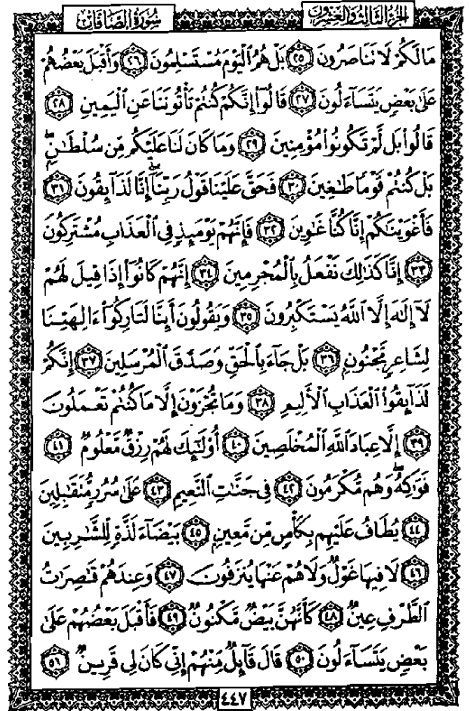 الجزء الثالث والعشرون سورة الصافات
مَا لَكُمْ لَا تَنَاصَرُونَ ٢٥ بَلْ هُمُ الْيَوْمَ مُسْتَسْلِمُونَ ٢٦ وَأَقْبَلَ بَعْضُهُمْ
عَلَىٰ بَعْضٍ يَتَسَاءَلُونَ ٢٧ قَالُوا إِنَّكُمْ كُنتُمْ تَأْتُونَنَا عَنِ الْيَمِينِ ٢٨
قَالُوا بَل لَّمْ تَكُونُوا مُؤْمِنِينَ ٢٩ وَمَا كَانَ لَنَا عَلَيْكُم مِّن سُلْطَانٍ ۖ
بَلْ كُنتُمْ قَوْمًا طَاغِينَ ٣٠ فَحَقَّ عَلَيْنَا قَوْلُ رَبِّنَا ۖ إِنَّا لَذَائِقُونَ ٣١
فَأَغْوَيْنَاكُمْ إِنَّا كُنَّا غَاوِينَ ٣٢ فَإِنَّهُمْ يَوْمَئِذٍ فِي الْعَذَابِ مُشْتَرِكُونَ
٣٣ إِنَّا كَذَٰلِكَ نَفْعَلُ بِالْمُجْرِمِينَ ٣٤ إِنَّهُمْ كَانُوا إِذَا قِيلَ لَهُمْ
لَا إِلَٰهَ إِلَّا اللَّهُ يَسْتَكْبِرُونَ ٣٥ وَيَقُولُونَ أَئِنَّا لَتَارِكُو آلِهَتِنَا
لِشَاعِرٍ مَّجْنُونٍ ٣٦ بَلْ جَاءَ بِالْحَقِّ وَصَدَّقَ الْمُرْسَلِينَ ٣٧ إِنَّكُمْ
لَذَائِقُو الْعَذَابِ الْأَلِيمِ ٣٨ وَمَا تُجْزَوْنَ إِلَّا مَا كُنتُمْ تَعْمَلُونَ
٣٩ إِلَّا عِبَادَ اللَّهِ الْمُخْلَصِينَ ٤٠ أُولَٰئِكَ لَهُمْ رِزْقٌ مَّعْلُومٌ ٤١
فَوَاكِهُ ۖ وَهُم مُّكْرَمُونَ ٤٢ فِي جَنَّاتِ النَّعِيمِ ٤٣ عَلَىٰ سُرُرٍ مُّتَقَابِلِينَ
٤٤ يُطَافُ عَلَيْهِم بِكَأْسٍ مِّن مَّعِينٍ ٤٥ بَيْضَاءَ لَذَّةٍ لِّلشَّارِبِينَ
٤٦ لَا فِيهَا غَوْلٌ وَلَا هُمْ عَنْهَا يُنزَفُونَ ٤٧ وَعِندَهُمْ قَاصِرَاتُ
الطَّرْفِ عِينٌ ٤٨ كَأَنَّهُنَّ بَيْضٌ مَّكْنُونٌ ٤٩ فَأَقْبَلَ بَعْضُهُمْ عَلَىٰ
بَعْضٍ يَتَسَاءَلُونَ ٥٠ قَالَ قَائِلٌ مِّنْهُمْ إِنِّي كَانَ لِي قَرِينٌ ٥١
٤٤٧